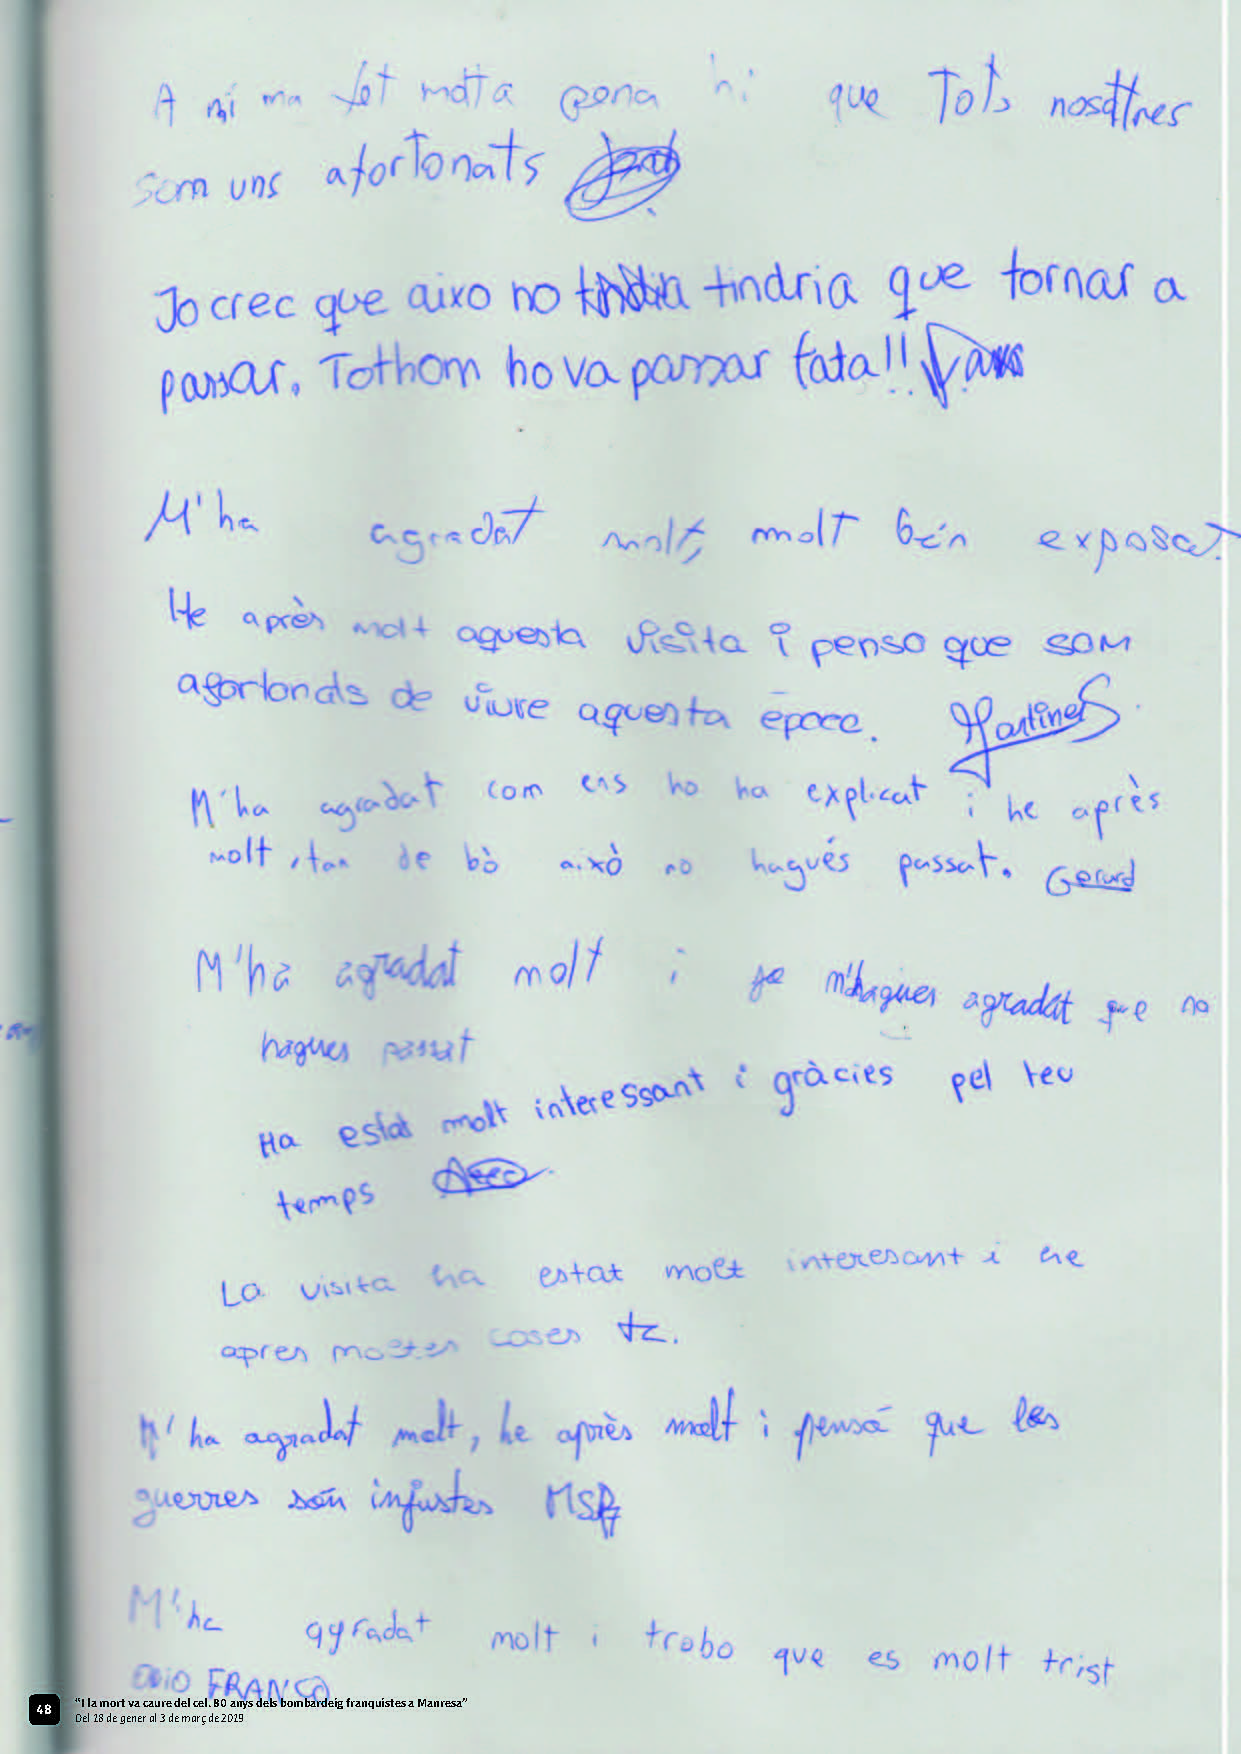 A mi ma fet molta pena hi que Tots nosaltres
som uns afortonats
Jo crec que aixo no tindria que tornar a
passar. Tothom ho va passar fata!!
M'ha agradat molt, molt bén exposat
He après molt aquesta visita i penso que som
afortonats de viure aquesta època. Martínez
M'ha agradat com ens ho ha explicat i he après
molt, tan de bò això no hagués passat. Gerard
M'ha agradat molt i m'hagues agradat que no
hagues passat
Ha estat molt interessant i gràcies pel teu
temps
La visita ha estat molt interesant i he
apres moltes coses
M'ha agradat molt, he après molt i pensá que les
guerres són injustes
M'ha agradat molt i trobo que es molt trist
ODIO FRANCO
48 "I la mort va caure del cel. 80 anys dels bombardeig franquistes a Manresa"
Del 18 de gener al 3 de març de 2019